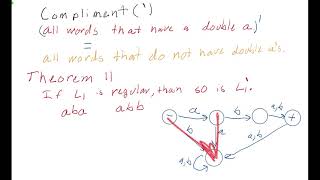 Compliment (')
(all words that have a double a)'
=
all words that do not have double a's.
Theorem 11
If L₁ is regular, than so is L₁'.
aba abb
- a b a,b +
b a a,b
a,b